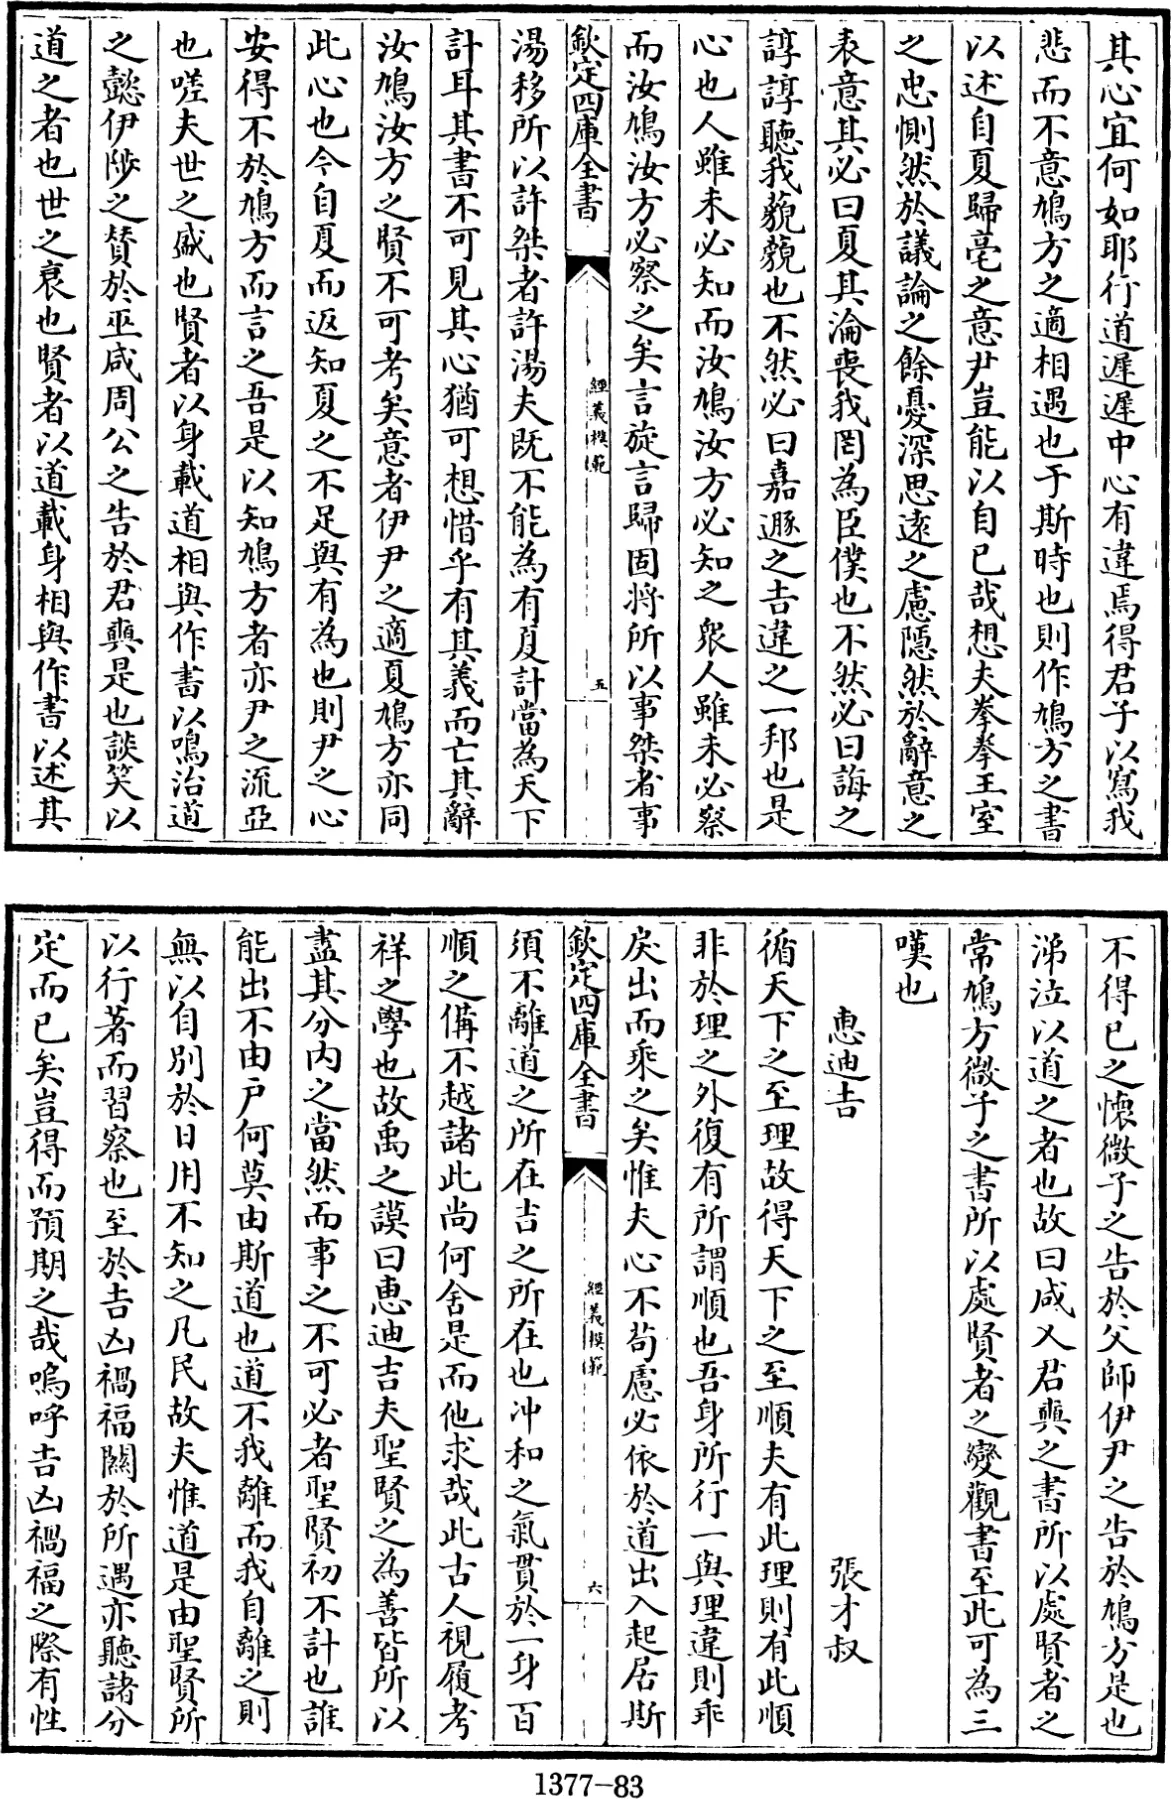 其心宜何如耶行道遲遲中心有違焉得君子以寫我
悲而不意鳩方之適相遇也于斯時也則作鳩方之書
以述自夏歸亳之意尹豈能以自已哉想夫拳拳王室
之忠惻然於議論之餘憂深思遠之慮隱然於辭意之
表意其必曰夏其淪喪我罔為臣僕也不然必曰誨之
諄諄聽我藐藐也不然必曰嘉遯之吉違之一邦也是
心也人雖未必知而汝鳩汝方必知之衆人雖未必察
而汝鳩汝方必察之矣言旋言歸固將所以事桀者事
欽定四庫全書
經義模範
五
湯移所以許桀者許湯夫既不能為有夏計當為天下
計耳其書不可見其心猶可想惜乎有其義而亡其辭
汝鳩汝方之賢不可考矣意者伊尹之適夏鳩方亦同
此心也今自夏而返知夏之不足與有為也則尹之心
安得不於鳩方而言之吾是以知鳩方者亦尹之流亞
也嗟夫世之盛也賢者以身載道相與作書以鳴治道
之懿伊陟之贊於巫咸周公之告於君奭是也談笑以
道之者也世之衰也賢者以道載身相與作書以述其
不得已之懷微子之告於父師伊尹之告於鳩方是也
涕泣以道之者也故曰咸乂君奭之書所以處賢者之
常鳩方微子之書所以處賢者之變觀書至此可為三
嘆也
惠迪吉
張才叔
循天下之至理故得天下之至順夫有此理則有此順
非於理之外復有所謂順也吾身所行一與理違則乖
戾出而乘之矣惟夫心不苟慮必依於道出入起居斯
欽定四庫全書
經義模範
六
須不離道之所在吉之所在也冲和之氣貫於一身百
順之備不越諸此尚何舍是而他求哉此古人視履考
祥之學也故禹之謨曰惠迪吉夫聖賢之為善皆所以
盡其分內之當然而事之不可必者聖賢初不計也誰
能出不由戶何莫由斯道也道不我離而我自離之則
無以自別於日用不知之凡民故夫惟道是由聖賢所
以行著而習察也至於吉凶禍福關於所遇亦聽諸分
定而已矣豈得而預期之哉嗚呼吉凶禍福之際有性
1377-83